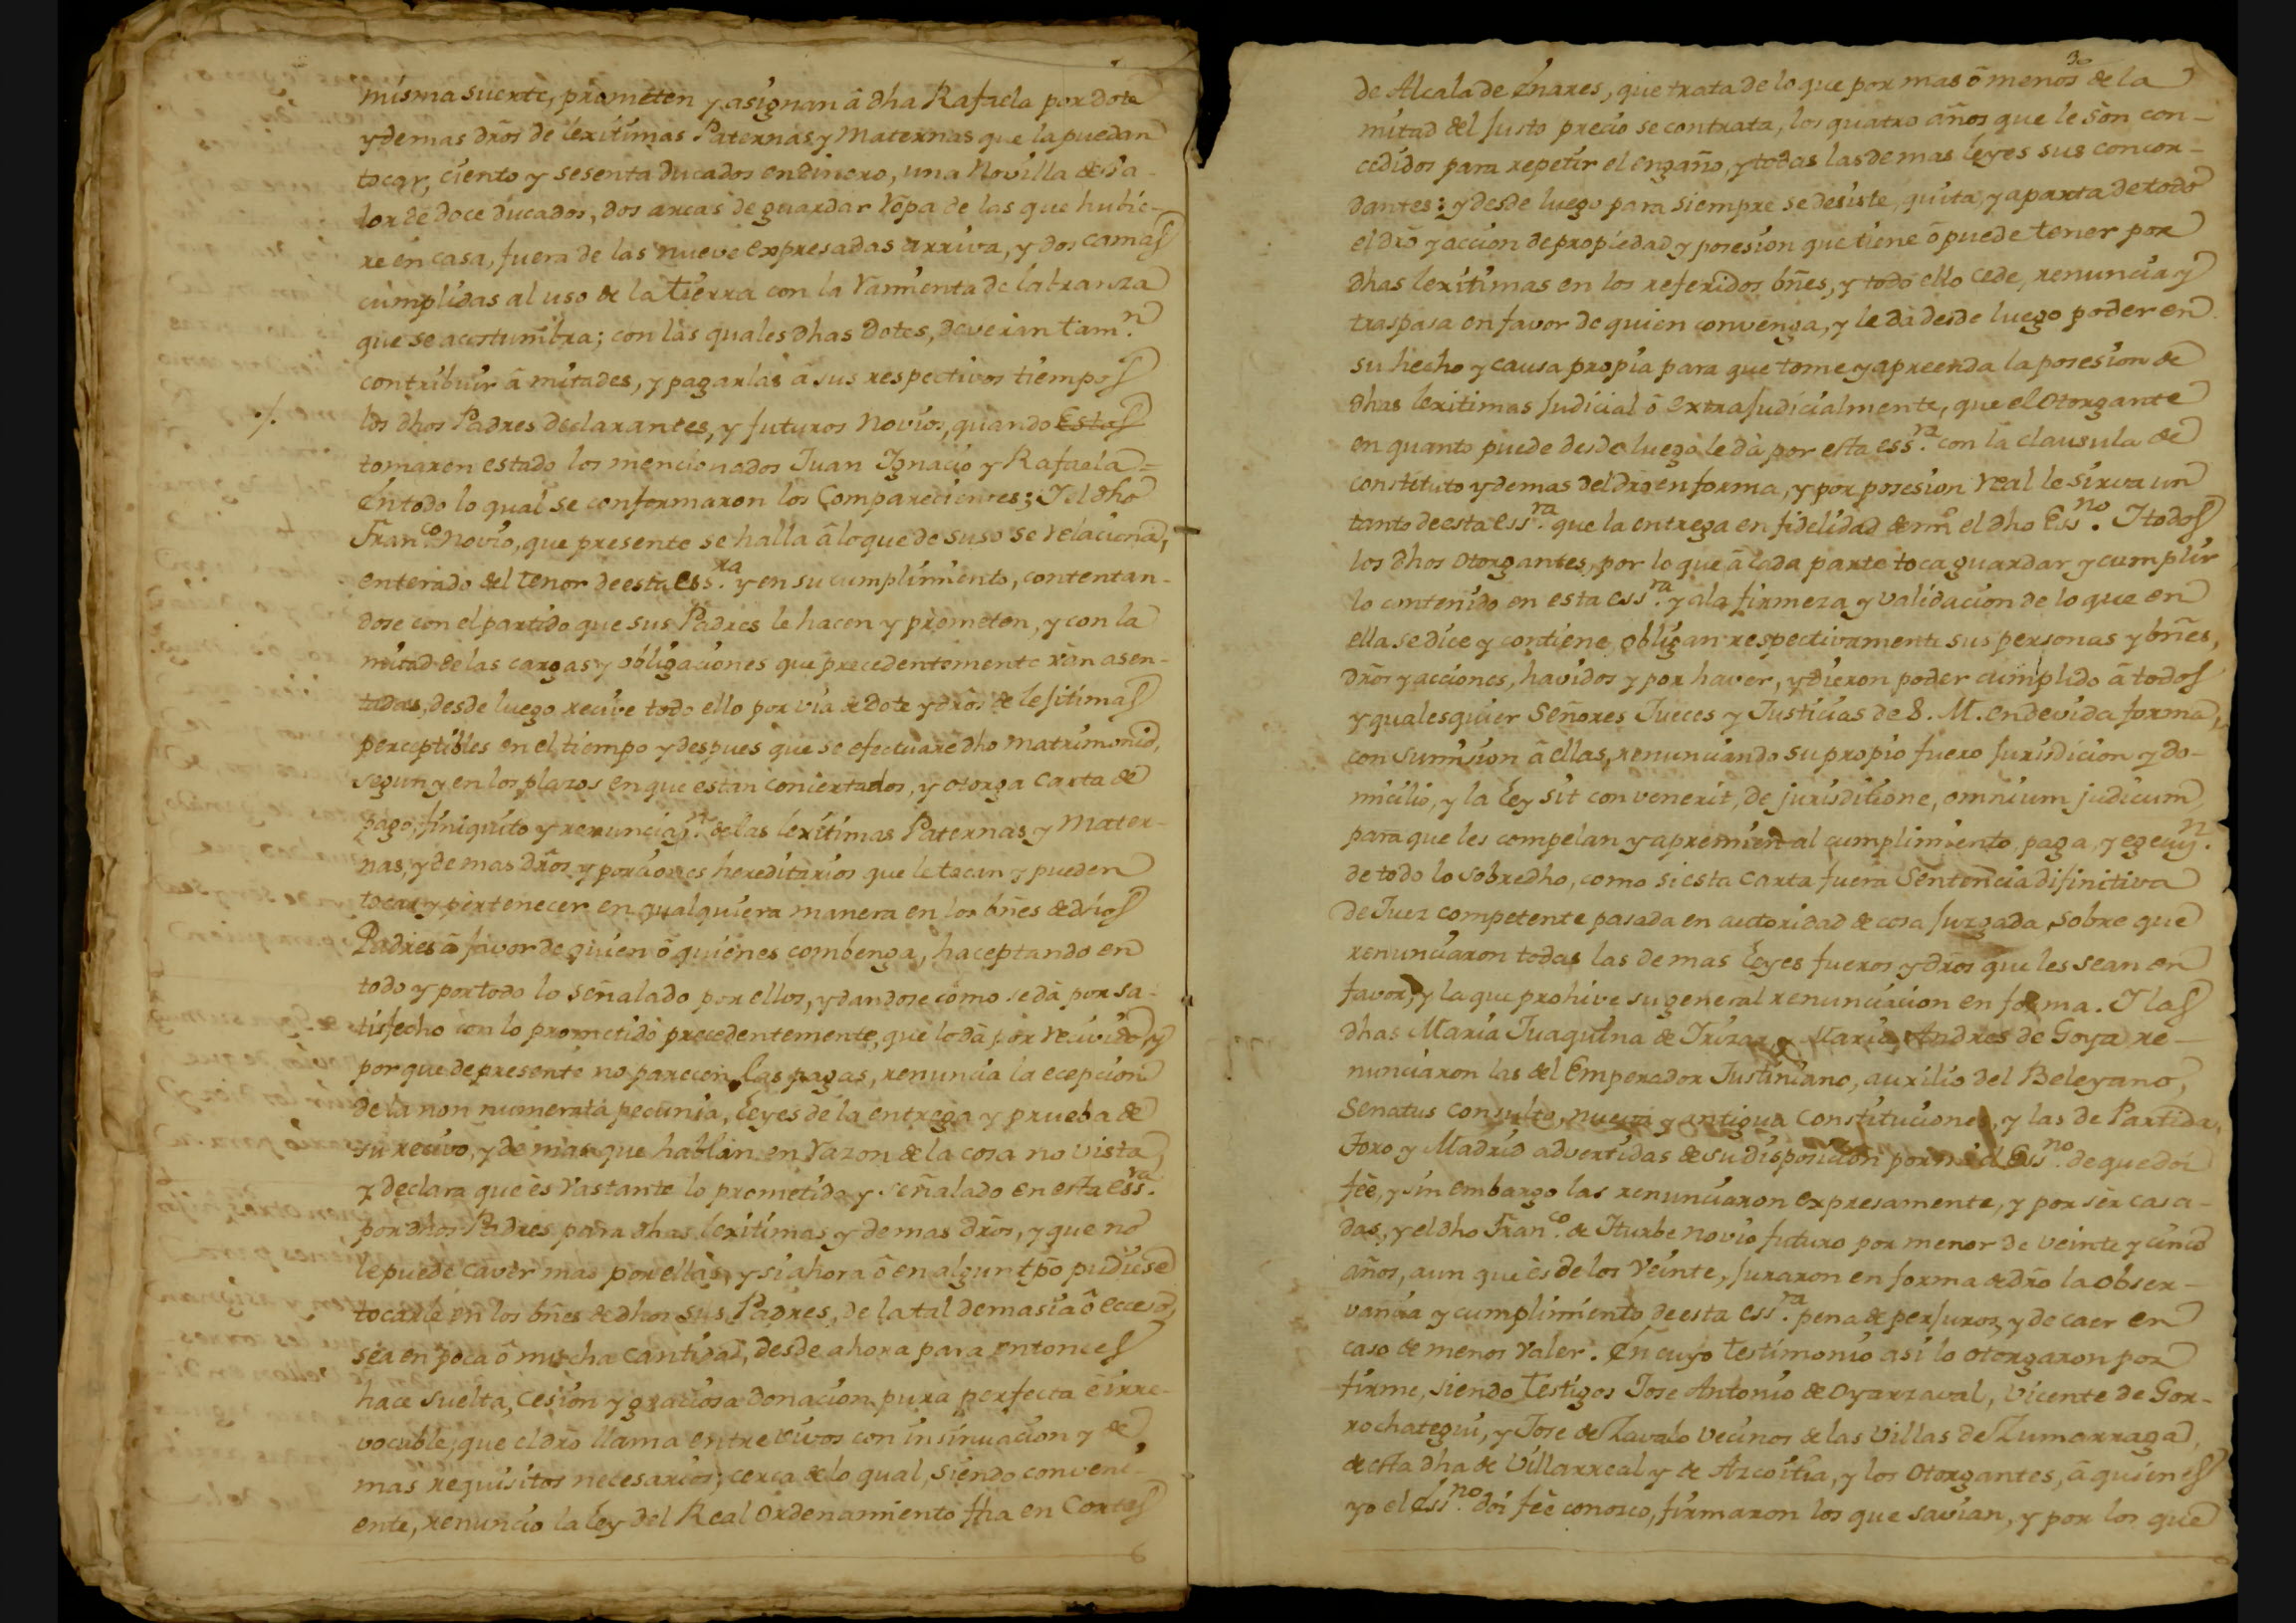 misma suerte, prometen y asignan â dha Rafaela por dote
y demas drõs de lexitimas Paternas y Maternas que la puedan
tocar, ciento y sesenta ducados en dinero, una Novilla de va-
lor de doce ducados, dos arcas de guardar rôpa de las que hubie-
re en casa, fuera de las nueve expresadas arriva, y dos camas
cumplidas al uso de la tierra con la ramienta de labranza
que se acostumbra; con las quales dhas dotes, deverian tamn.
contribuir â mitades, y pagarlas â sus respectivos tiempos
./. los dhos Padres declarantes, y futuros Novios, quando Estos
tomaren estado los mencionados Juan Ignacio y Rafaela =
En todo lo qual se conformaron los Comparecientes; I el dho
Franco. Novio, que presente se halla â lo que de suso se relaciona,
enterado del tenor de esta essra. y en su cumplimiento, contentan-
dose con el partido que sus Padres le hacen y prometen, y con la
mitad de las cargas y obligaciones que precedentemente ván asen-
tadas, desde luego recive todo ello por via de dote y drõs de lejitimas
perceptibles en el tiempo y despues que se efectuare dho matrimonio,
segun y en los plazos en que están concertados, y otorga carta de
pago, finiquito y renunciaz.n de las lexitimas Paternas y Mater-
nas, y demas drõs y porciones hereditarios que le tocan y pueden
tocar y pertenecer en qualquiera manera en los bñes de dhos
Padres â favor de quien ô quiénes combenga, haceptando en
todo y por todo lo señalado por ellos, y dandose como se dâ por sa-
tisfecho con lo prometido precedentemente, que lo dâ por recivido, y
por que de presente no parecen las pagas, renuncia la ecepcion
de la non numerata pecunia, leyes de la entrega y prueba de
su recivo, y demas que hablan en razon de la cosa no vista
y declara que ès vastante lo prometido y señalado en esta essra.
por dhos Padres para dhas lexitimas y demas drõs, y que no
le puede caver mas por ellas, y si ahora ô en algun tpõ pudiese
tocarle en los bñes de dhos sus Padres, de la tal demasia ô ecceso,
sea en poca ô mucha cantidad, desde ahora para entonces
hace suelta, cesion y graciosa donacion pura perfecta ê irre-
vocable, que el drõ llama entre vivos con insinuacion y de
mas requisitos necesarios; cerca de lo qual, siendo conveni
ente, renuncio la ley del Real ordenamiento fha en Cortes
30
de Alcala de Enares, que trata de lo que por mas ô menos de la
mitad del justo precio se contrata, los quatro años que le són con-
cedidos para repetir el engaño, y todas las demas leyes sus concor-
dantes: y desde luego para siempre se desiste, quita, y aparta de todo
el drõ y accion de propiedad y posesion que tiene ô puede tener por
dhas lexitimas en los referidos bñes, y todo ello cede, renuncia y
traspasa en favor de quien convenga, y le dà desde luego poder en
su hecho y causa propia para que tome y apreenda la posesion de
dhas lexitimas judicial ô extrajudicialmente, que el otorgante
en quanto puede desde luego le dà por esta essra. con la clausula de
constituto y demas del drõ en forma, y por posesion real le sirva un
tanto de esta essra. que la entrega en fidelidad de mi el dho Essno. I todos
los dhos otorgantes, por lo que â cada parte toca guardar y cumplir
lo contenido en esta essra. y a la firmeza y validacion de lo que en
ella se dice y contiene, obligan respectivamente sus personas y bñes,
drõs y acciones, havidos y por haver, y dieron poder cumplido â todos
y qualesquier Señores Jueces y Justicias de S. M. en devida forma,
con sumision â ellas, renunciando su propio fuero jurisdicion y do-
micilio, y la ley sit convenerit, de jurisditione, omnium judicum
para que les compelan y apremien al cumplimiento, paga, y egecuz.n
de todo lo sobredho, como si esta carta fuera Sentencia difinitiva
de Juez competente pasada en autoridad de cosa juzgada, sobre que
renunciaron todas las demas leyes fueros y drõs que les sean en
favor, y la que prohive su general renunciacion en forma. I las
dhas Maria Juaquina de Irizar, y Maria Andres de Goya re-
nunciaron las del Emperador Justiniano, auxilio del Beleyano,
Senatus consulto, nueva y antigua Constituciones, y las de Partida,
Toro y Madrid advertidas de su disposicion por mi el Essno. de que doi
feè, y sin embargo las renunciaron expresamente, y por sèr casa-
das, y el dho Franco. de Iturbe novio futuro por menor de veinte y cinco
años, aun que ès de los veinte, juraron en forma de drõ la obser-
vancia y cumplimiento de esta essra. pena de perjuros, y de caer en
caso de menos valer. En cuyo testimonio asi lo otorgaron por
firme, siendo testigos Jose Antonio de Oyarzaval, Vicente de Gor-
rochategui, y Jose de Zavalo vecinos de las Villas de Zumarraga,
de esta dha de Villarreal y de Azcoitia, y los otorgantes, â quienes
yo el Essno. doi feè conosco, firmaron los que savian, y por los que